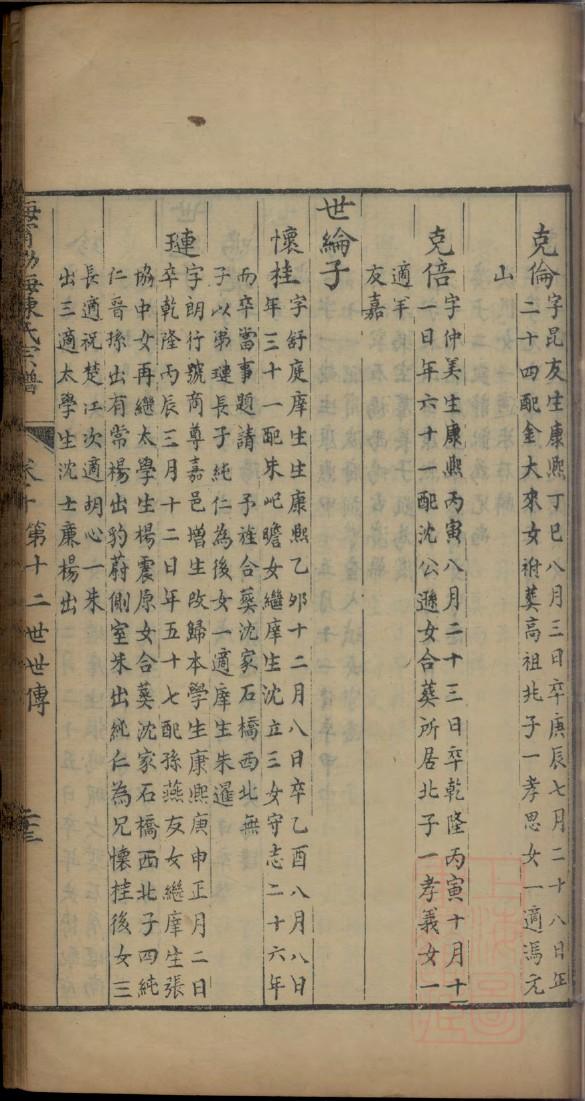 克倫字昆友生康熙丁巳八月三日卒庚辰七月二十八日年
二十四配金大來女祔葬高祖兆子一孝思女一適馮元
山
克倍字仲美生康熙丙寅八月二十三日卒乾隆丙寅十月十
一日年六十一配沈公遜女合葬所居北子一孝義女一
適羊
友嘉
世綸子
懷桂字舒庭庠生生康熙乙卯十二月八日卒乙酉八月八日
年三十一配朱屺瞻女繼庠生沈立三女守志二十六年
而卒當事題請 予旌合葬沈家石橋西北無
子以弟璉長子純仁為後女一適庠生朱暹
璉字朗行號商尊嘉邑增生改歸本學生康熙庚申正月二日
卒乾隆丙辰三月十二日年五十七配孫燕友女繼庠生張
協中女再繼太學生楊震原女合葬沈家石橋西北子四純
仁晉孫出有常楊出豹蔚側室朱出純仁為兄懷桂後女三
長適祝楚江次適胡心一朱
出三適太學生沈士廉楊出
海寧渤海陳氏宗譜 卷十 第十二世世傳 三十三